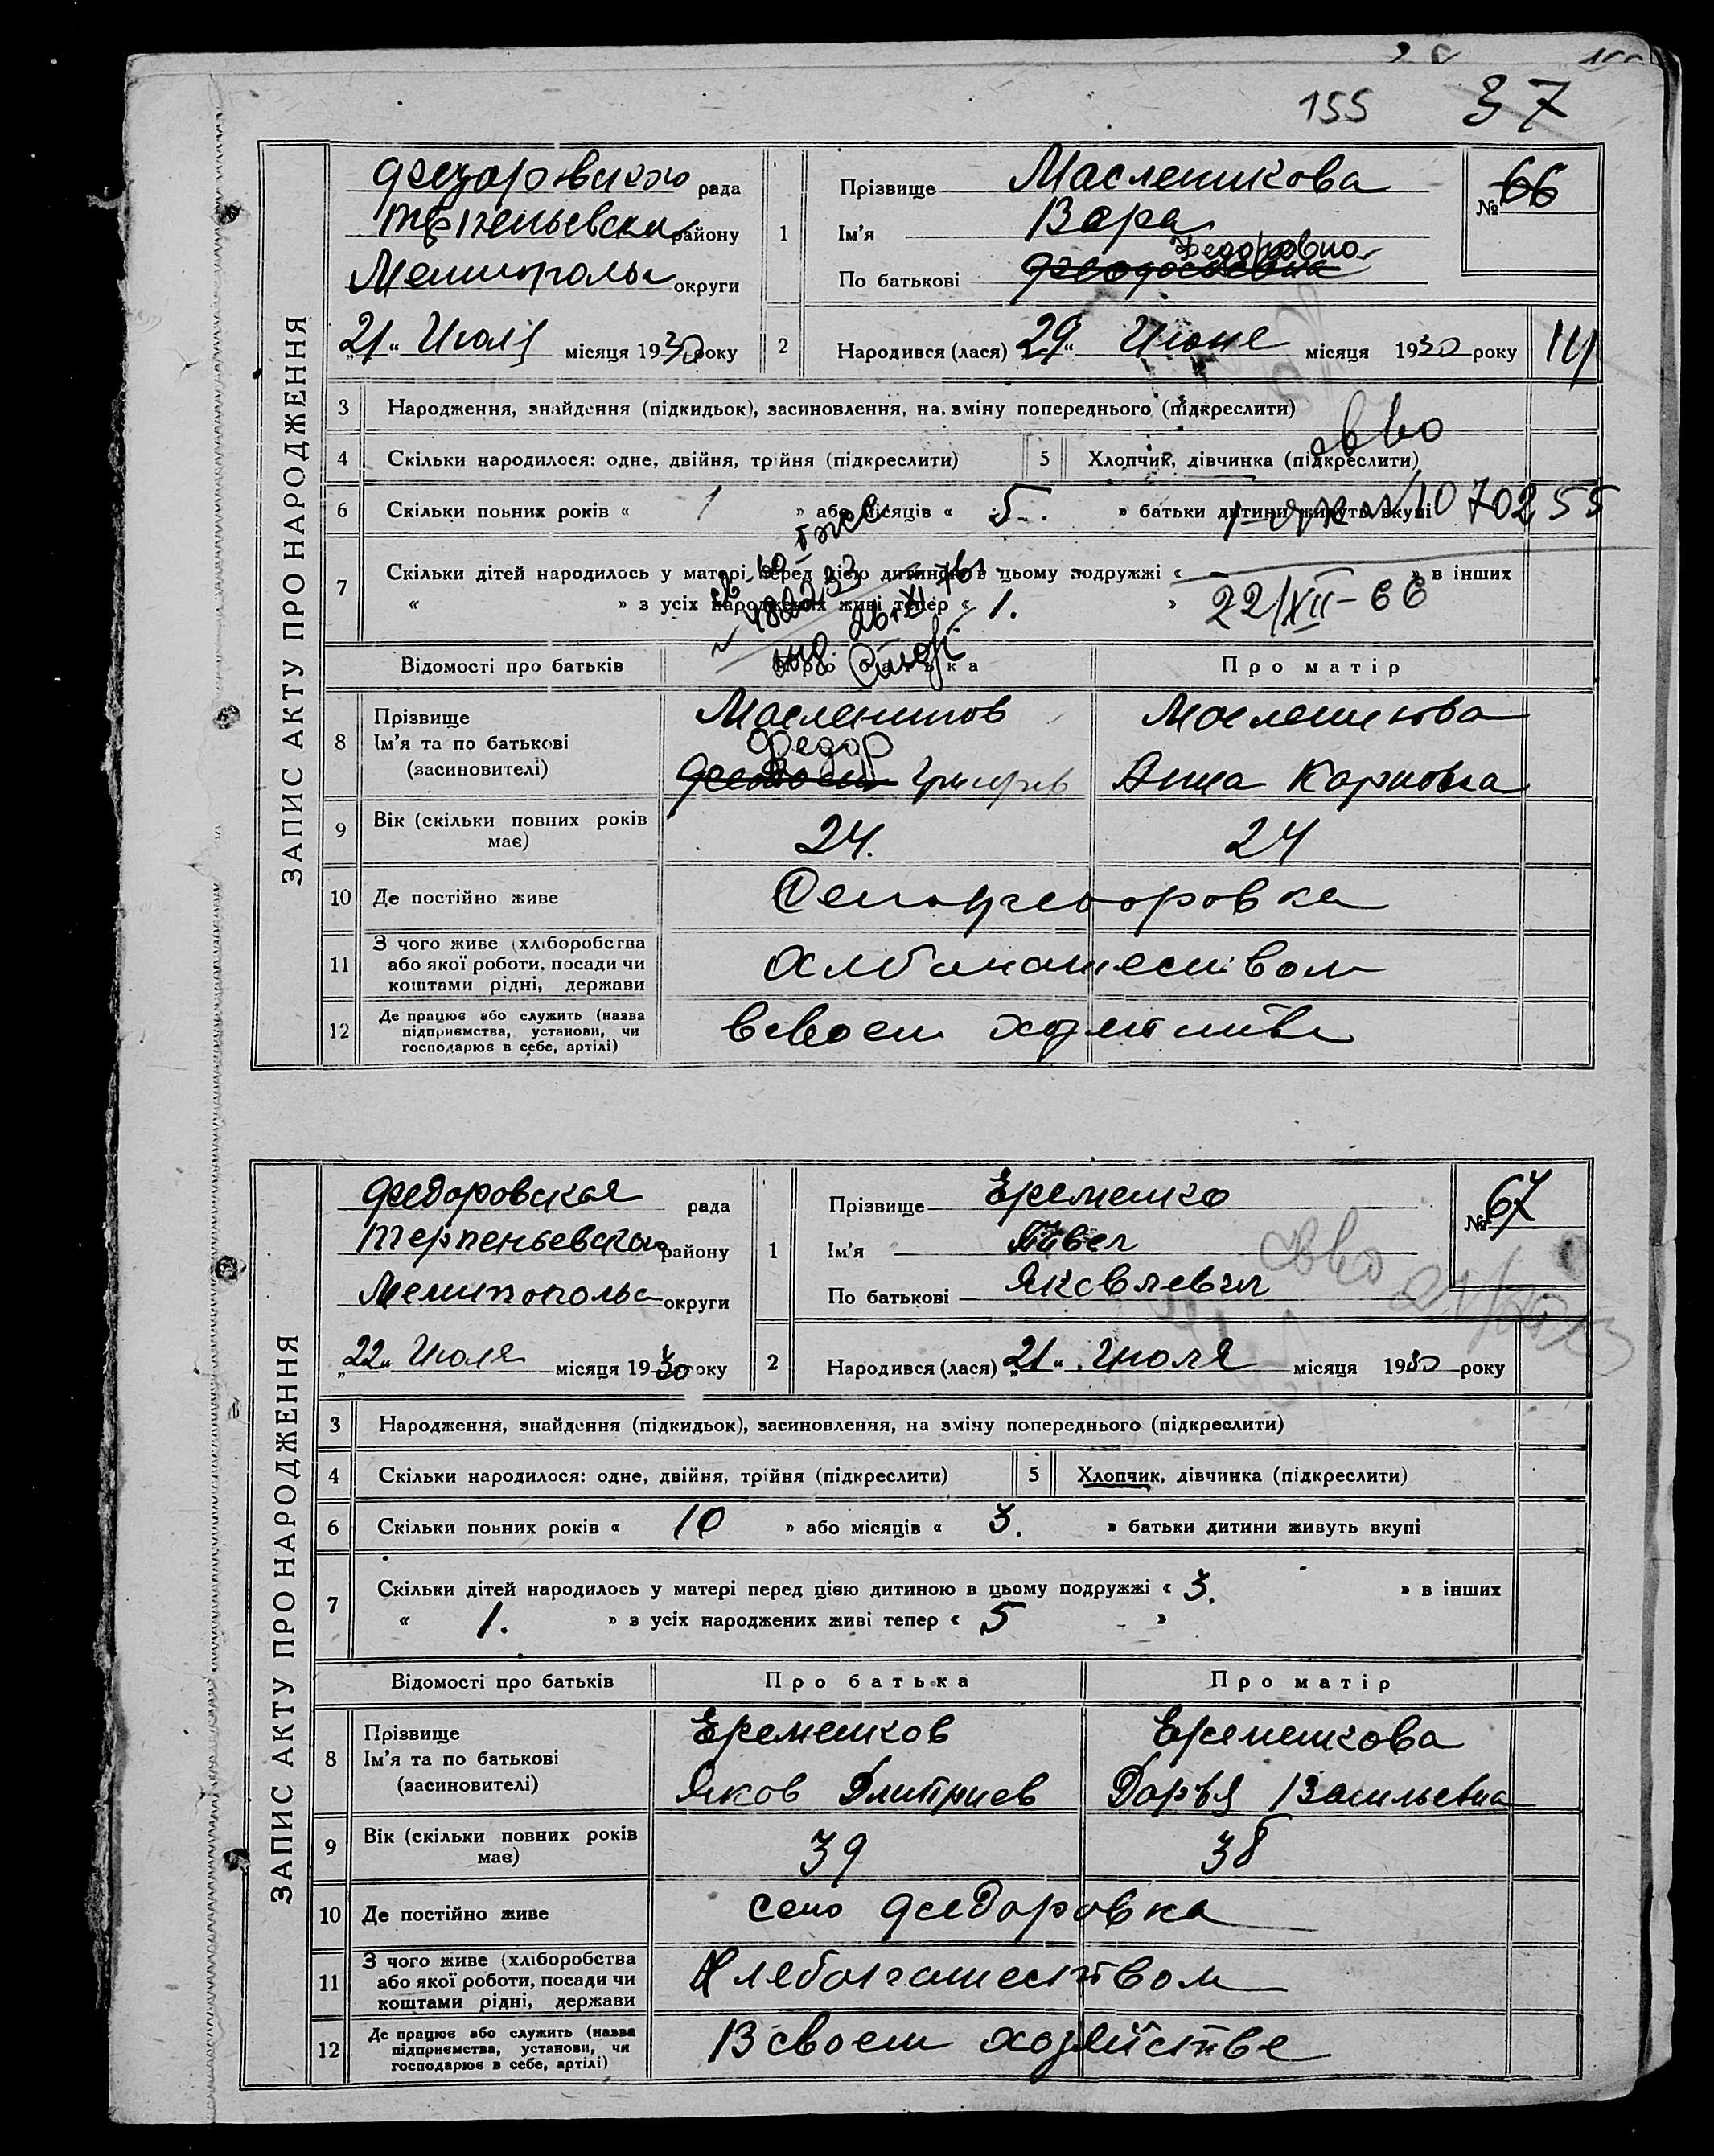 155 37
ЗАПИС АКТУ ПРО НАРОДЖЕННЯ
Федоровского рада
Терпеньевски району
Мелитополь округи
„21“ Июля місяця 1930 року
1 Прізвище Маслешикова
Ім'я Вера
Федоровна
По батькові Феодосьевна
№ 66
2 Народився (лася) „29“ Июне місяця 1930 року
3 Народження, знайдення (підкидьок), засиновлення, на зміну попереднього (підкреслити)
4 Скільки народилося: одне, двійня, трійня (підкреслити) 5 Хлопчик, дівчинка (підкреслити)
6 Скільки повних років « 1 » або місяців « 5. » батьки дитини живуть вкупі
1070255
7 Скільки дітей народилось у матері перед цією дитиною в цьому подружжі « — » в інших
« » з усіх народжених живі тепер « 1. »
22/XII-66
Відомості про батьків Про батька Про матір
8 Прізвище Ім'я та по батькові (засновителі)
Маслеников Маслешикова
Федор
Феодосий Григорьев Анна Карповна
9 Вік (скільки повних років має) 24. 24
10 Де постійно живе Село Федоровка
11 З чого живе (хліборобства або якої роботи, посади чи коштами рідні, держави Хлебопашеством
12 Де працює або служить (назва підприємства, установи, чи господарює в себе, артілі) В своем хозяистве
ЗАПИС АКТУ ПРО НАРОДЖЕННЯ
Федоровская рада
Терпеньевского району
Мелитополь округи
„22“ Июля місяця 1930 року
1 Прізвище Еременко
Ім'я Павел
По батькові Яковлевич
№ 67
2 Народився (лася) „21“ Июля місяця 1930 року
3 Народження, знайдення (підкидьок), засиновлення, на зміну попереднього (підкреслити)
4 Скільки народилося: одне, двійня, трійня (підкреслити) 5 Хлопчик, дівчинка (підкреслити)
6 Скільки повних років « 10 » або місяців « 3. » батьки дитини живуть вкупі
7 Скільки дітей народилось у матері перед цією дитиною в цьому подружжі « 3. » в інших
« 1. » з усіх народжених живі тепер « 5 »
Відомості про батьків Про батька Про матір
8 Прізвище Ім'я та по батькові (засиновителі)
Еременков Еременкова
Яков Дмитриев Дарья Васильевна
9 Вік (скільки повних років має) 39 38
10 Де постійно живе село Федоровка
11 З чого живе (хліборобства або якої роботи, посади чи коштами рідні, держави Хлебопашеством
12 Де працює або служить (назва підприємства, установи, чи господарює в себе, артілі) В своем хозяйстве